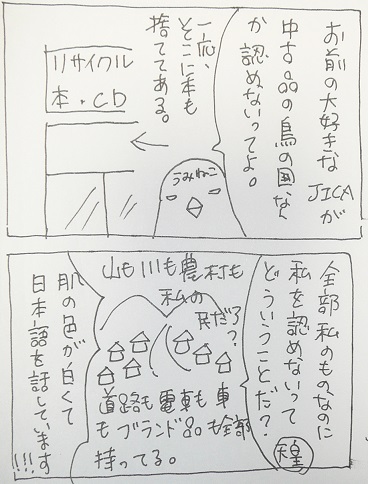 お前の大好きな
JICAが
中古品の鳥の国なん
か認めないってよ。
一応、
そこに本も
捨ててある。
リサイクル
本・CD
うみねこ
全部私のものなのに
私を認めないって
どういうことだ?
天皇
山も川も農村も
私の
民だろ?
道路も電車も車
もブランド品も全部
持ってる。
肌の色が白くて
日本語を話しています
!!!